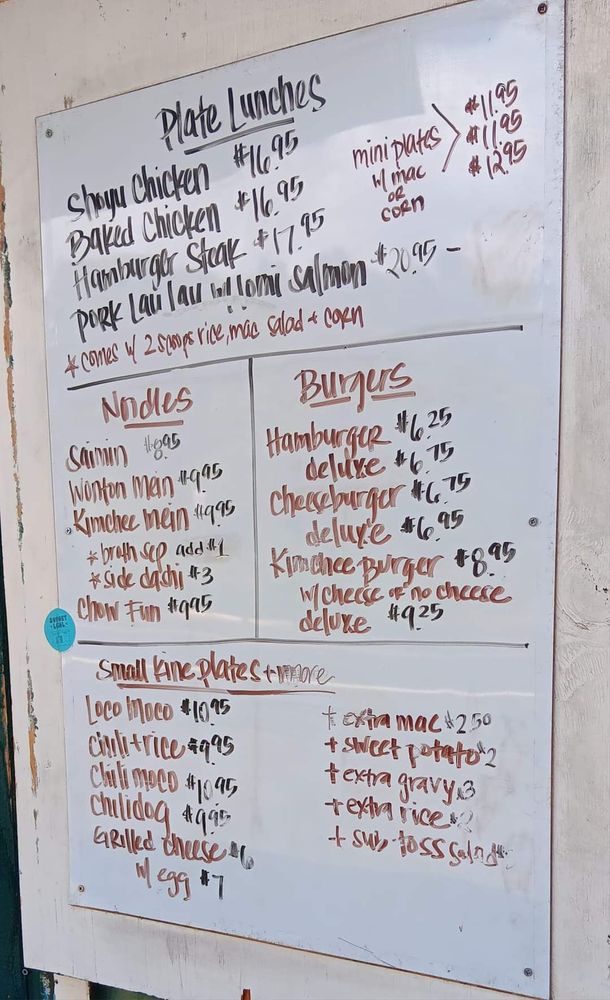 Plate Lunches
Shoyu Chicken $16.95
Baked Chicken $16.95
Hamburger Steak $17.95
Pork Lau Lau w/ lomi salmon $20.95 -
mini plates
w/ mac
or
corn
$11.95
$11.95
$12.95
* comes w/ 2 scoops rice, mac salad + corn
Noodles
Saimin $8.95
Wonton Mein $9.95
Kimchee Mein $9.95
* broth sep add $1
* side dashi $3
Chow Fun $9.95
Burgers
Hamburger $6.25
deluxe $6.75
Cheeseburger $6.75
deluxe $6.95
Kimchee Burger $8.95
w/ cheese or no cheese
deluxe $9.25
Small kine plates + more
Loco Moco $10.95
Chili + rice $9.95
Chili moco $10.95
Chilidog $9.95
Grilled cheese $6
w/ egg $7
+ extra mac $2.50
+ sweet potato $2
+ extra gravy $3
+ extra rice $2
+ sub toss salad